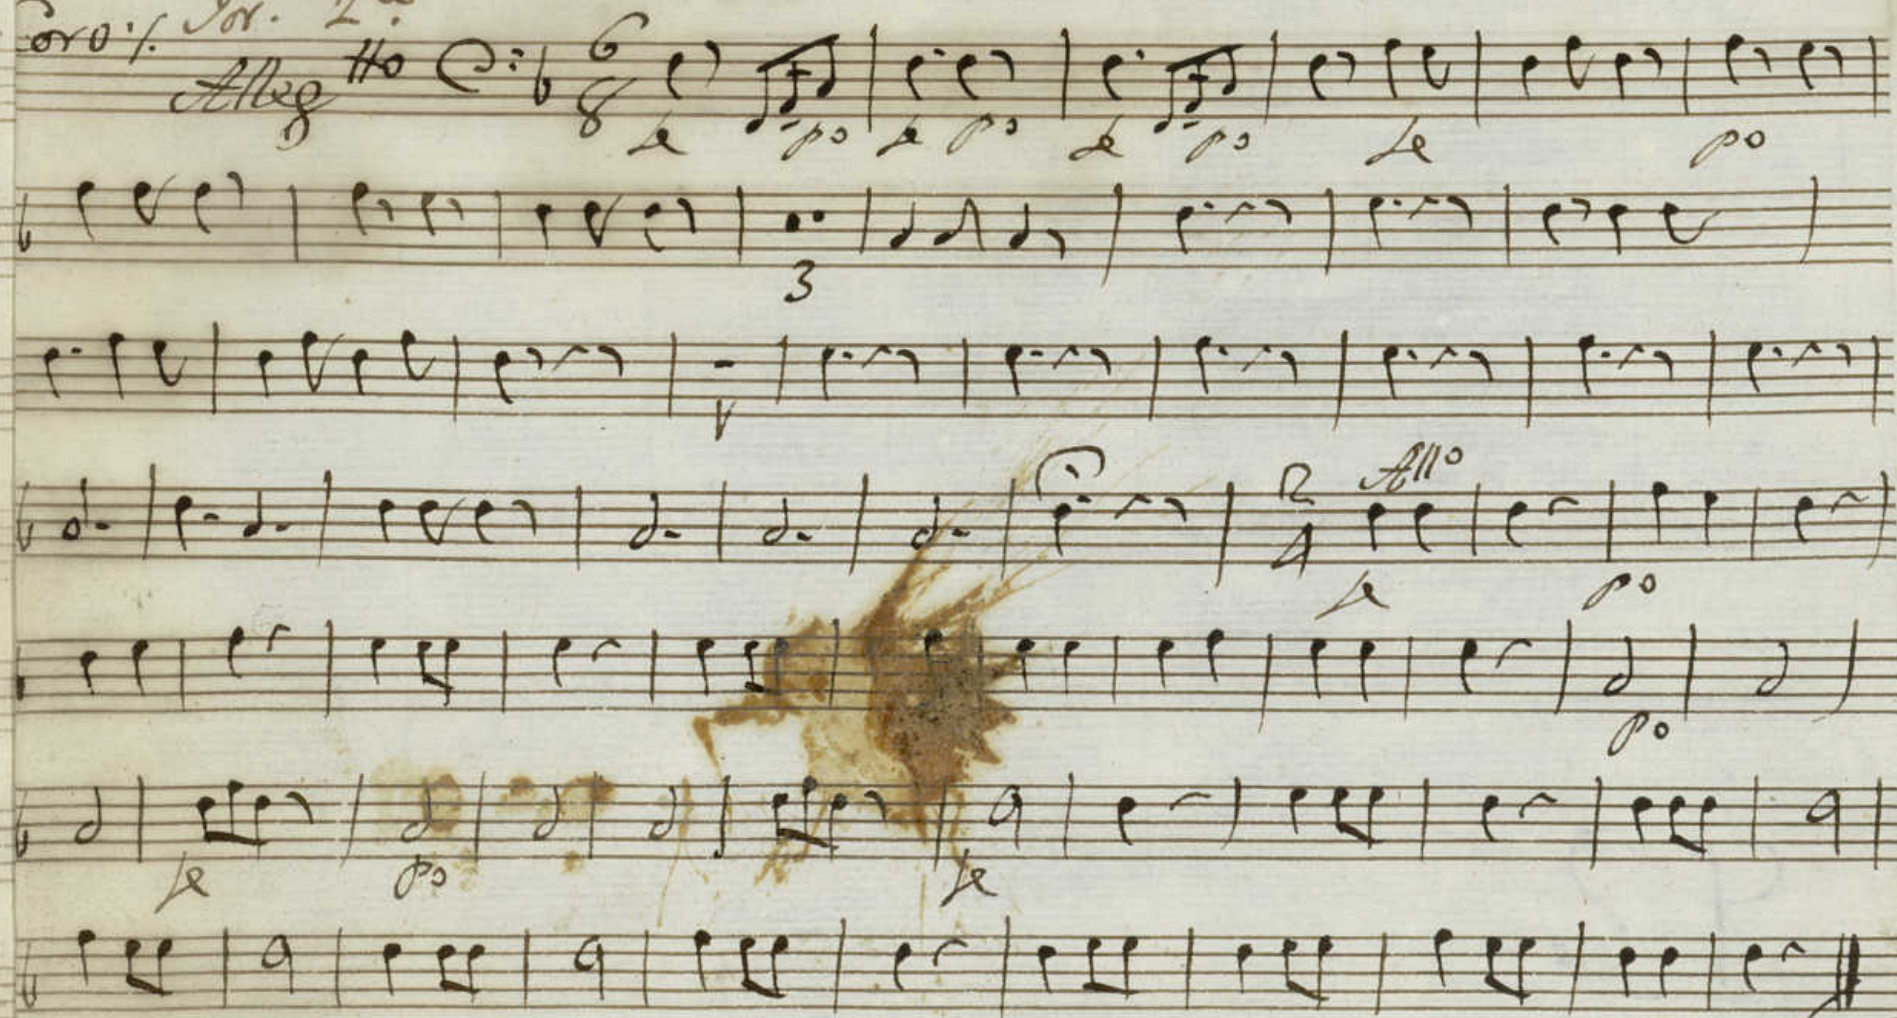 Coro Jor. 2ª
Allegtto 6 8
fe po fe po fe po fe po
3
Allo
2 4
fe po
po
fe po fe